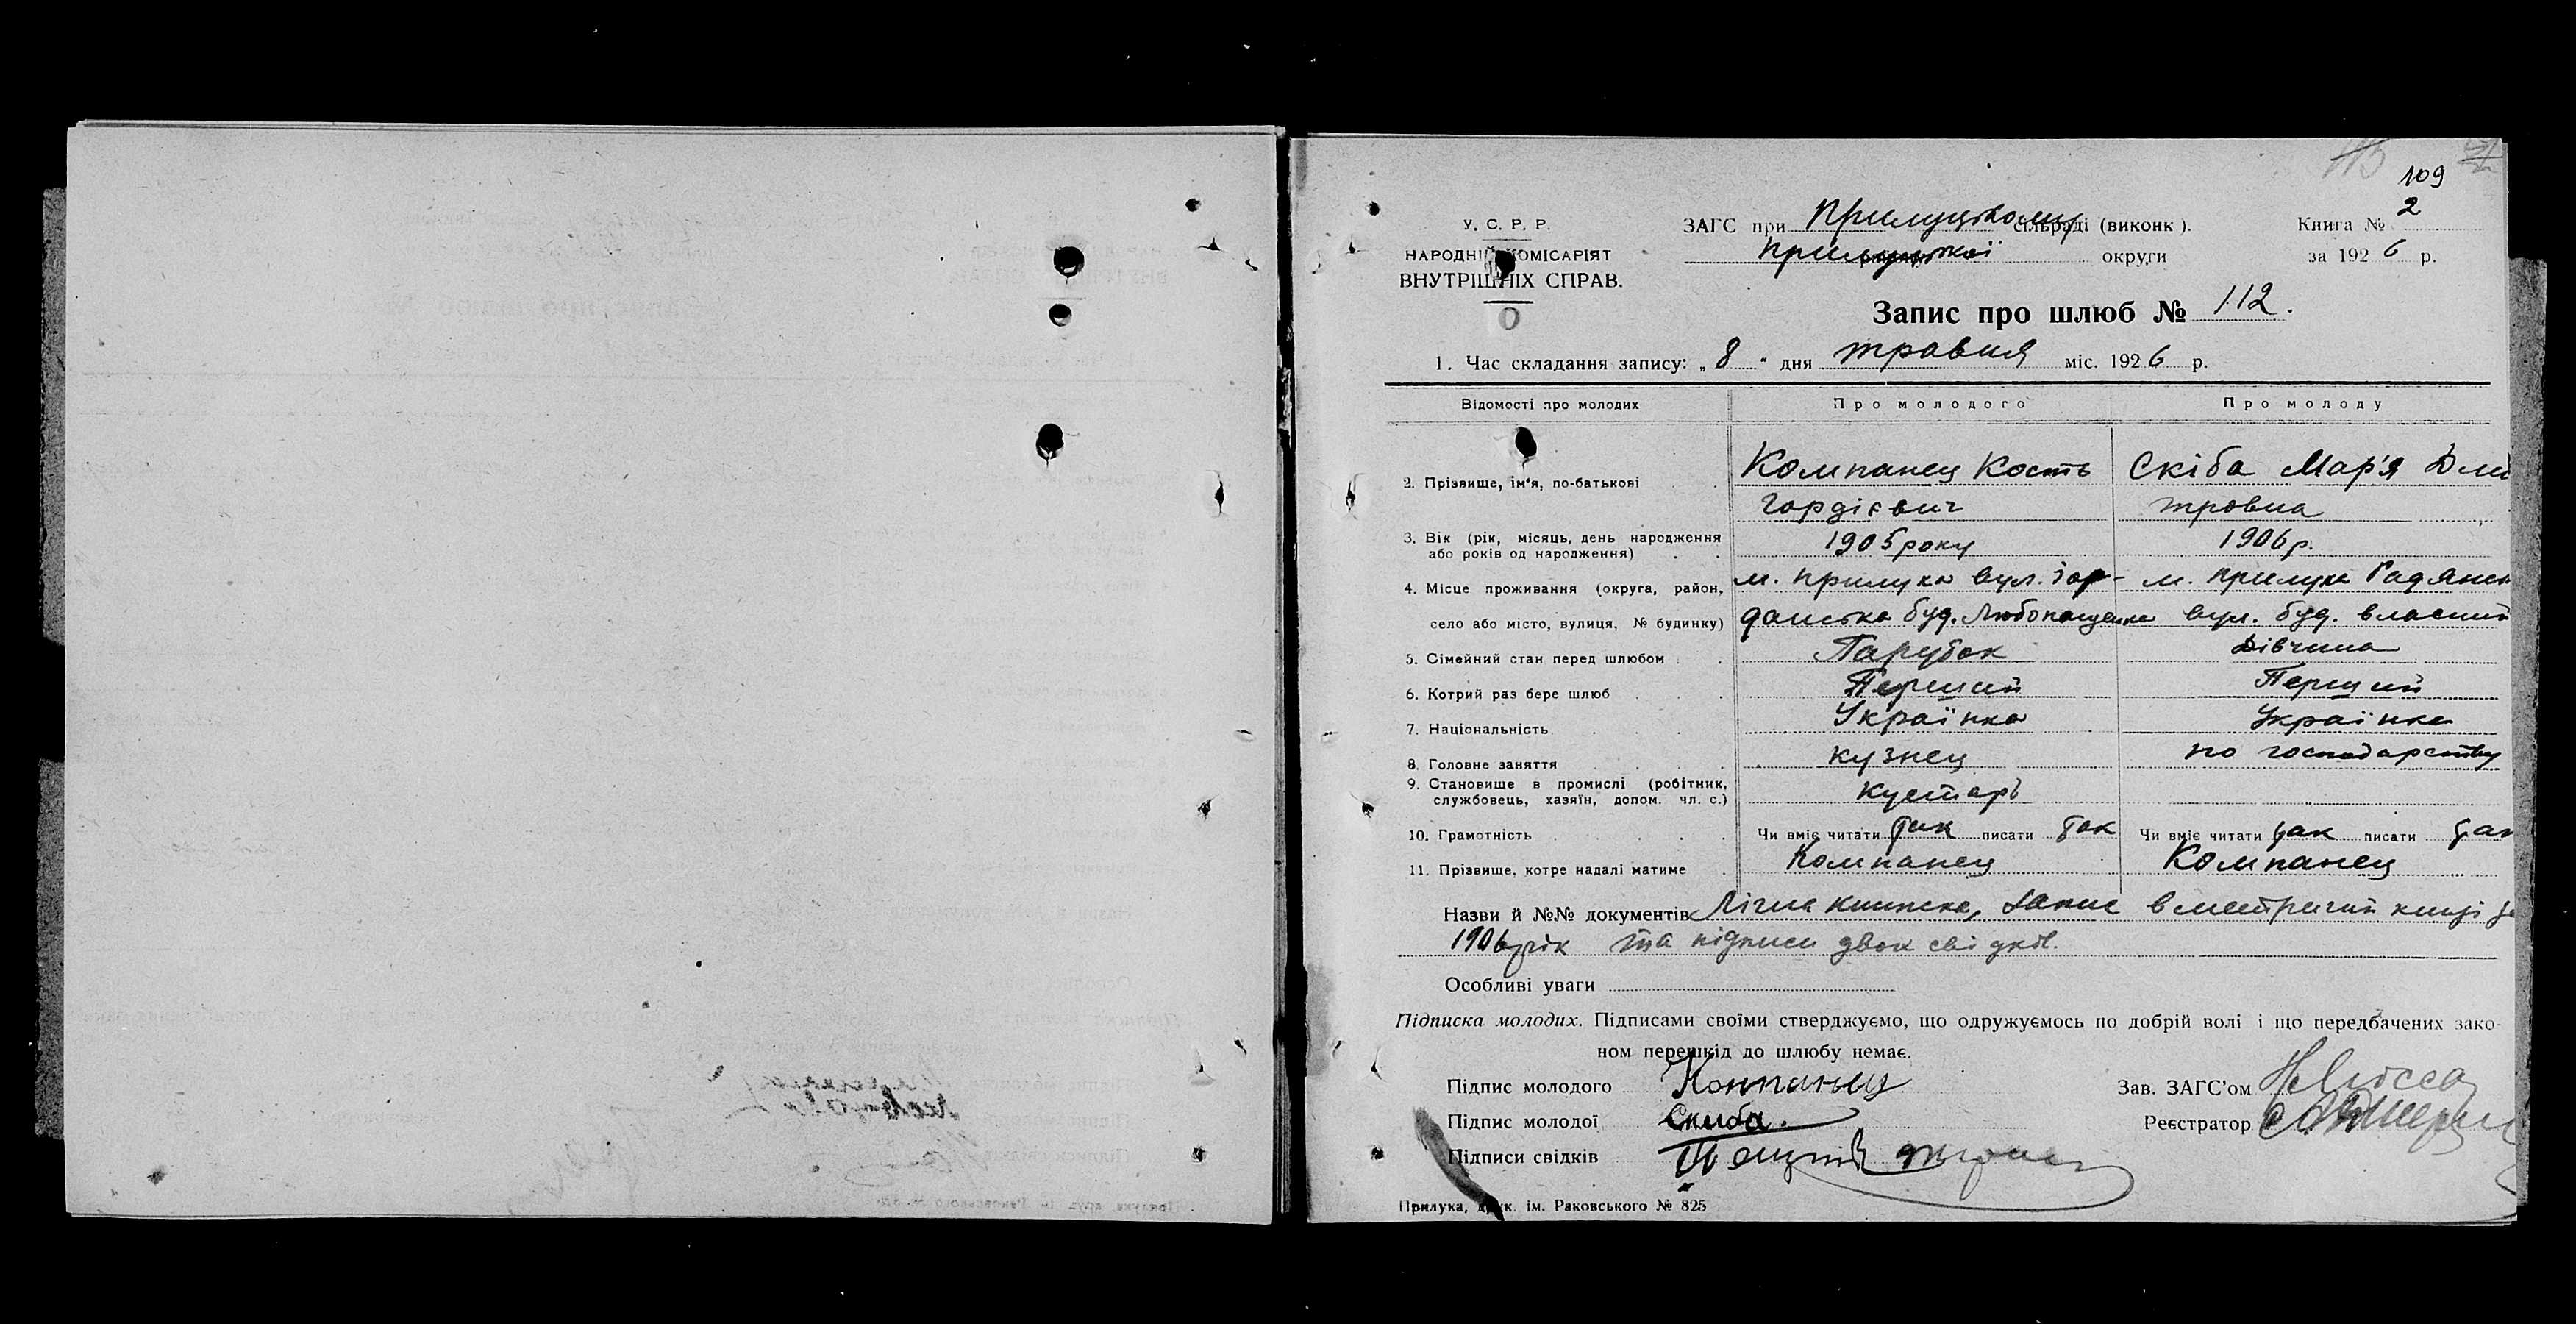 109
У. С. Р. Р.
НАРОДНІЙ КОМІСАРІЯТ
ВНУТРІШНІХ СПРАВ.
ЗАГС при Прилуцькому сільраді (виконк).
Прилуцької округи
Книга № 2
за 1926 р.
Запис про шлюб № 112.
1. Час складання запису: „8" дня травня міс. 1926 р.
Відомості про молодих Про молодого Про молоду
2. Прізвище, ім'я, по-батькові Компанец Кость Скіба Мар'я Дми
Гордієвич тровна
3. Вік (рік, місяць, день народження 1905 року 1906 р.
або років од народження)
4. Місце проживання (округа, район, м. Прилука вул. Іор- м. Прилука Радянсь
село або місто, вулиця, № будинку) данська буд. Любопащенка вул. буд. власний
5. Сімейний стан перед шлюбом Парубок Дівчина
6. Котрий раз бере шлюб Перший Перший
7. Національність Українка Українка
8. Головне заняття кузнец по господарству
9. Становище в промислі (робітник, кустарь
службовець, хазяїн, допом. чл. с.)
10. Грамотність Чи вміє читати так писати так Чи вміє читати так писати так
11. Прізвище, котре надалі матиме Компанец Компанец
Назви й №№ документів Лічна книжка, запис в метричній книзі за
1906 рік та підписи двох свідків.
Особливі уваги
Підписка молодих. Підписами своїми стверджуємо, що одружуємось по добрій волі і що передбачених зако-
ном перешкід до шлюбу немає.
Підпис молодого Компанец
Зав. ЗАГС'ом
Підпис молодої Скиба.
Реєстратор
Підписи свідків
Прилука, друк. ім. Раковського № 825